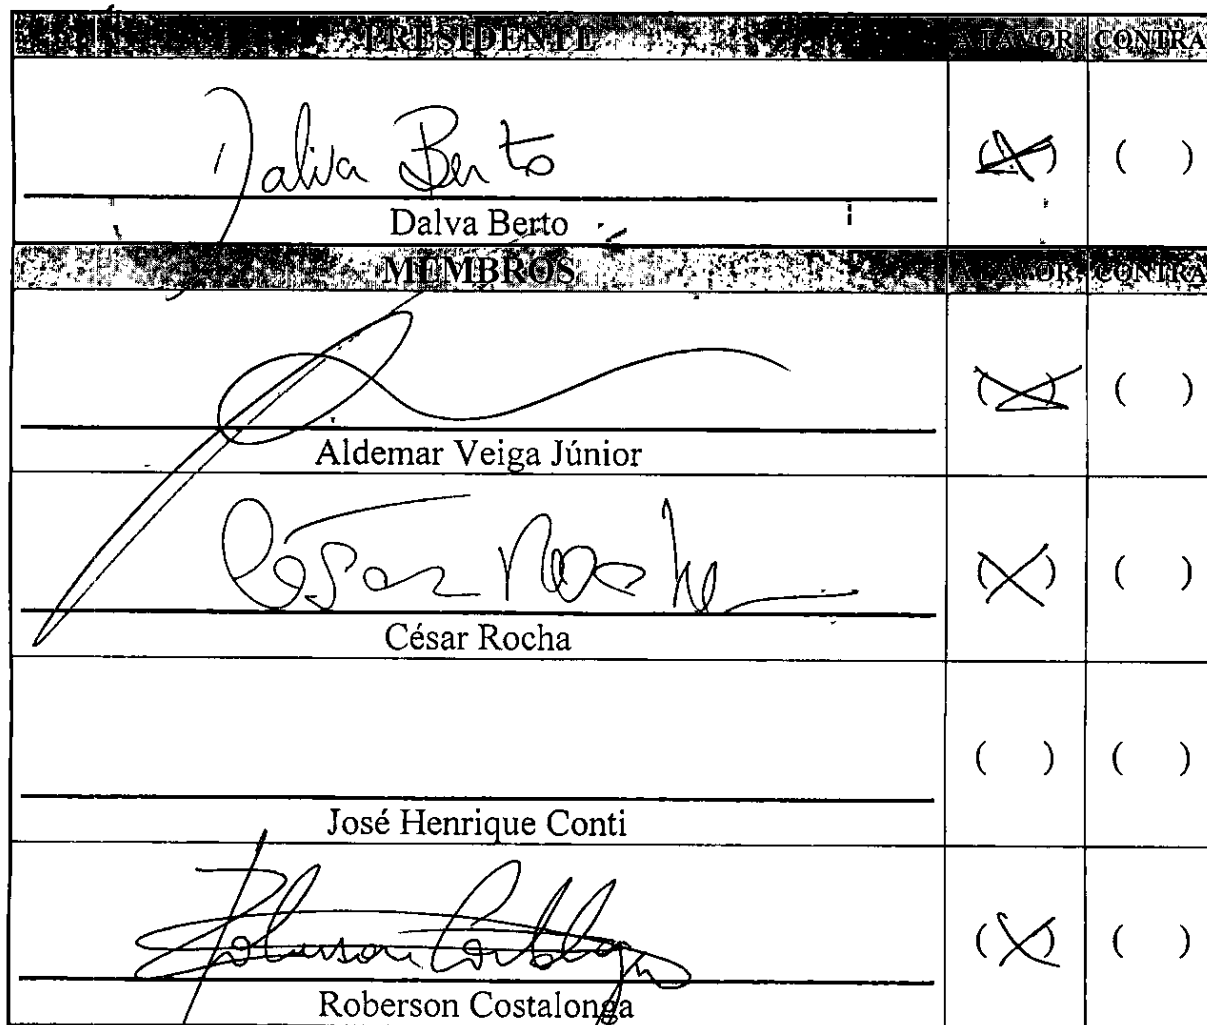 PRESIDENTE A FAVOR CONTRA
Dalva Berto (X) ( )
Dalva Berto
MEMBROS A FAVOR CONTRA
(X) ( )
Aldemar Veiga Júnior
César Rocha (X) ( )
César Rocha
( ) ( )
José Henrique Conti
Roberson Costalonga (X) ( )
Roberson Costalonga